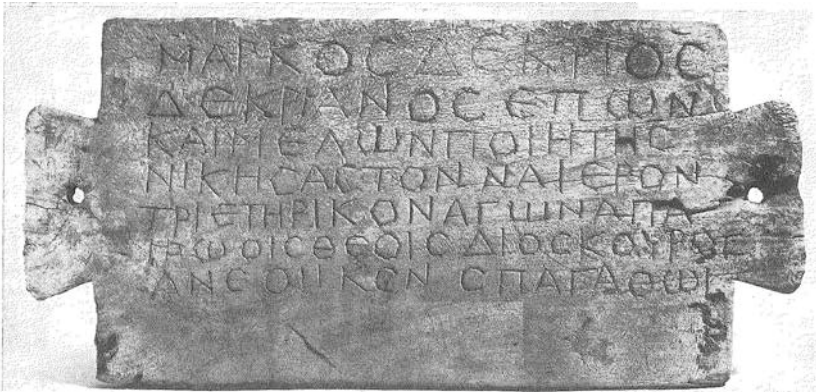 ΜΑΡΚΟϹ ΔΕΚΡΙΟϹ
ΔΕΚΡΙΑΝΟϹ ΕΠΩΝ
ΚΑΙ ΜΕΛΩΝ ΠΟΙΗΤΗϹ
ΝΙΚΗϹΑϹ ΤΟΝ ΝΑ ΙΕΡΟΝ
ΤΡΙΕΤΗΡΙΚΟΝ ΑΓΩΝΑ ΠΑ
ΤΡΩΟΙϹ ΘΕΟΙϹ
ΑΝΕΘΗΚΕΝ ΕΠ ΑΓΑΘΩΙ